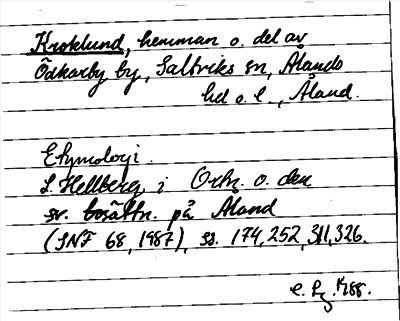 Kroklund, hemman o. del av
Ödkarby by, Saltviks sn, Ålands
hd o. l., Åland.
Etymologi.
L. Hellberg i Ortn. o. den
sv. bosättn. på Åland
(SNF 68, 1987), ss. 174, 252, 311, 326.
1988.